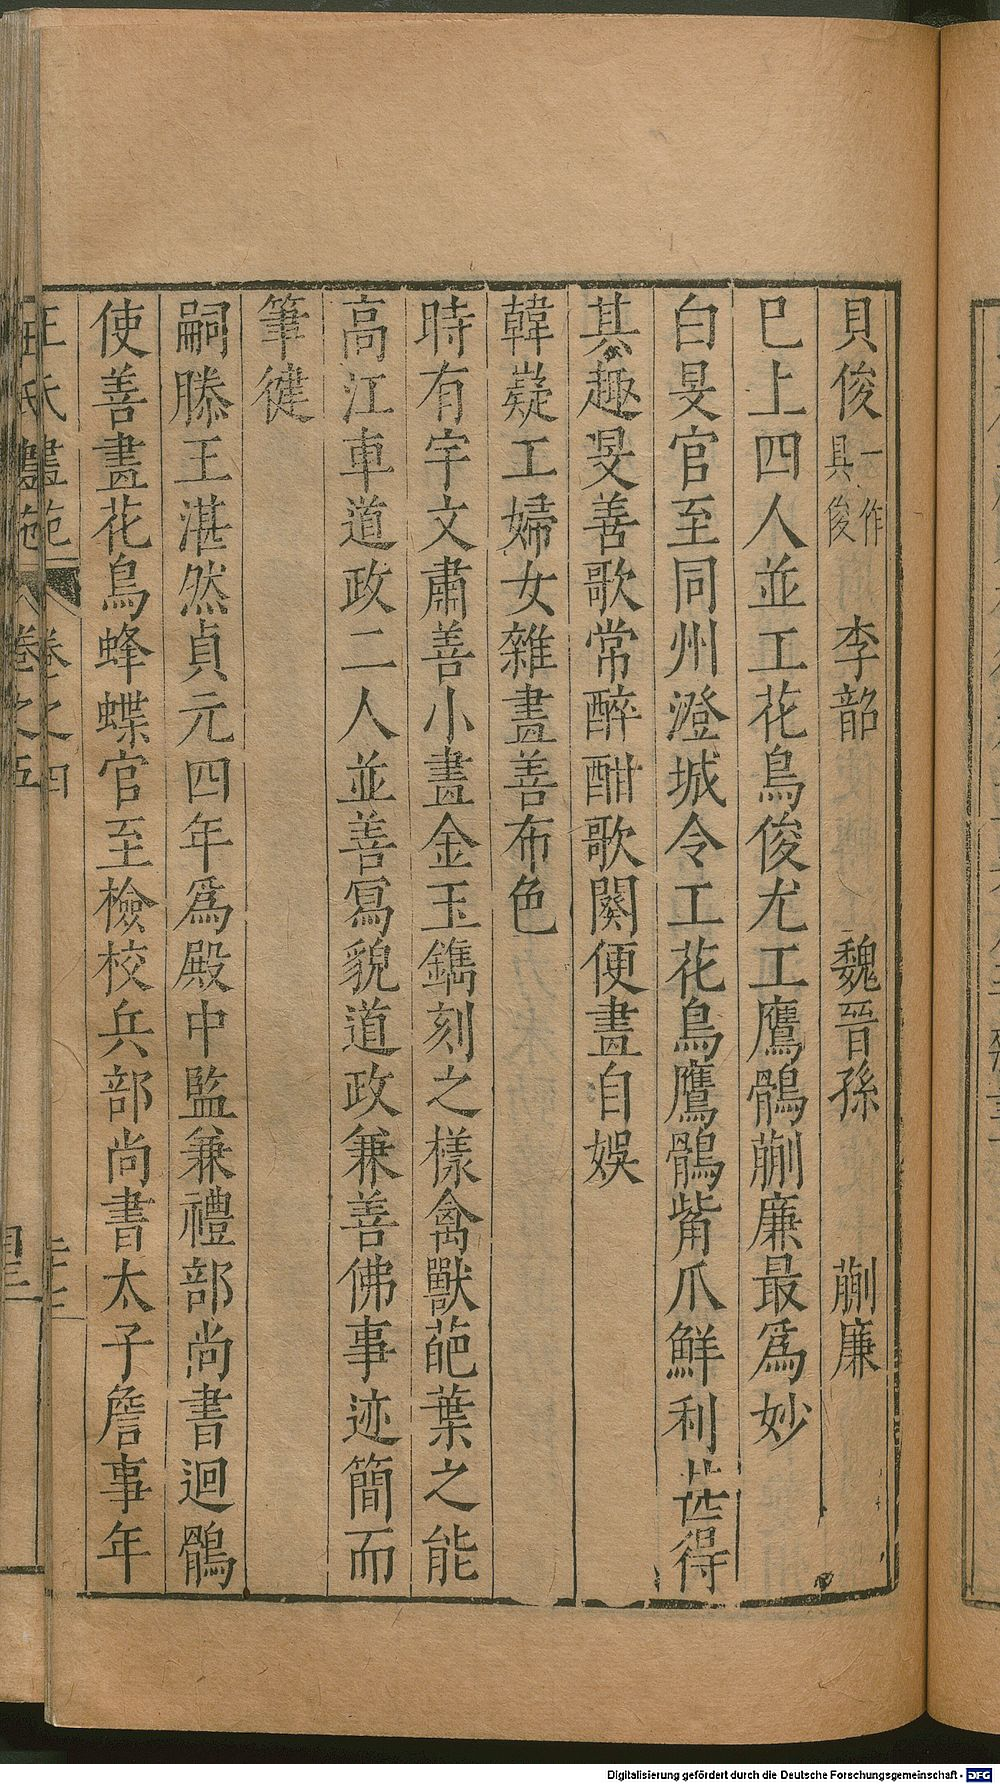 貝俊一作具俊 李韶 魏晉孫 蒯廉
已上四人並工花鳥俊尤工鷹鶻蒯廉最爲妙
白旻官至同州澄城令工花鳥鷹鶻觜爪鮮利甚得
其趣旻善歌常醉酣歌闋便畫自娛
韓嶷工婦女雜畫善布色
時有宇文肅善小畫金玉鐫刻之樣禽獸葩葉之能
高江車道政二人並善寫貌道政兼善佛事迹簡而
筆健
嗣滕王湛然貞元四年爲殿中監兼禮部尚書迴鶻
使善畫花鳥蜂蝶官至檢校兵部尚書太子詹事年
王氏畫苑 卷之四
卷之五
Digitalisierung gefördert durch die Deutsche Forschungsgemeinschaft - DFG